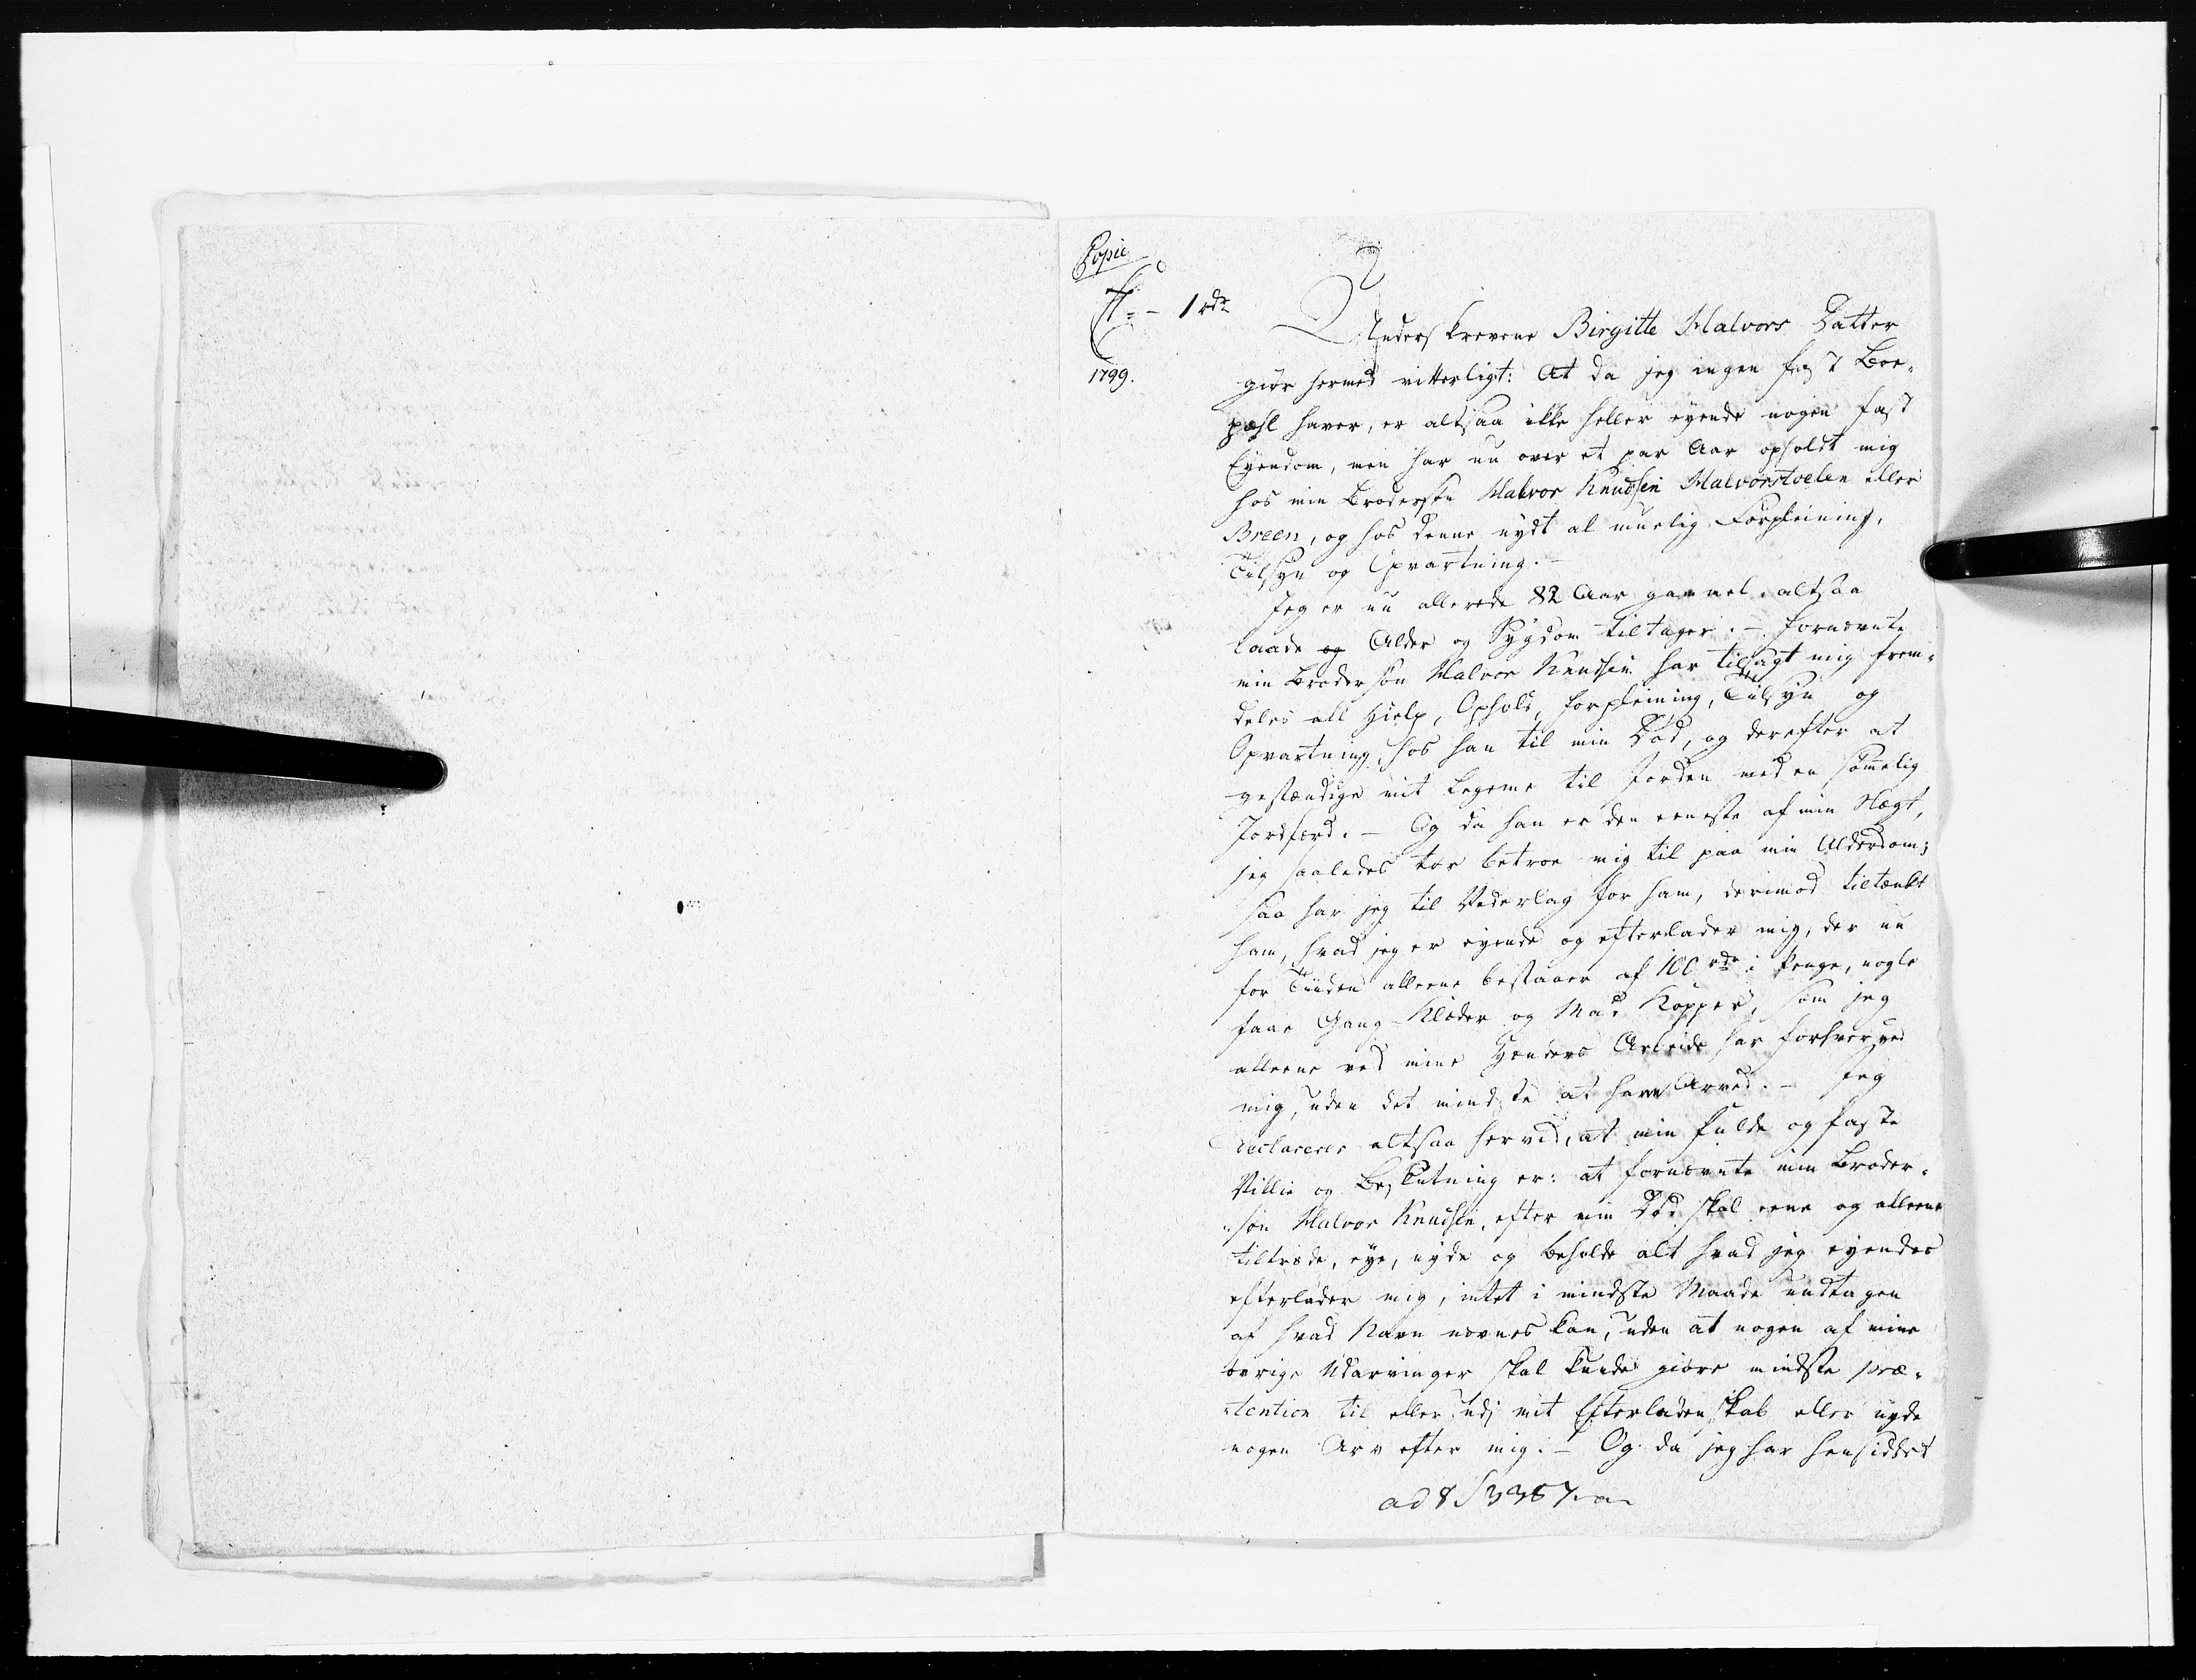 Copie
1 rdr
1799.
Underskrevene Birgitte Halvors Datter
giør hermed vitterligt: At da jeg ingen fast Boe-
pæhl haver, er altsaa ikke heller eyende nogen fast
Eyendom, men har nu over et par Aar opholdt mig
hos min Brodersøn Halvor Knudsen Halvorstoelen eller
Breen, og hos denne nydt al muelig Forpleining,
Tilsyn og Opvartning. -
Jeg er nu allerede 82 Aar gammel, altsaa
baade og Alder og Sygdom tiltager. - fornævnte
min Brodersøn Halvor Knudsen har tilsagt mig frem-
deles all Hielp, Ophold, forpleining, Tilsyn og
Opvartning, hos han til min Død, og derefter at
bestændige mit Legeme til Jorden med en sømelig
Jordfærd. - Og da han er den eeneste af min Slægt,
jeg saaledes tør betroe mig til paa min Alderdom;
saa har jeg til Vederlag for ham, derimod tiltænkt
ham, hvad jeg er eyende og efterlader mig, der nu
for Tiiden alleene bestaaer af 100 rdr i Penge, nogle
faae Gang-Klæder og Mad Kopper, som jeg
alleene ved mine Hænders Arbeide har forhvervet
mig, uden det mindste at have Arved. - Jeg
declarerer altsaa herved, at min fulde og faste
Villie og Beslutning er: at fornævnte min Broder-
søn Halvor Knudsen, efter min Død skal eene og alleene
tiltræde, eye, nyde og beholde alt hvad jeg eyendes
efterlader mig, intet i mindste Maade undtagen
af hvad Navn nævnes kan, uden at nogen af mine
øvrige Udarvinger skal kunde giøre mindste præ-
tention til eller udj mit Efterladenskab eller nyde
nogen Arv efter mig. - Og da jeg har hensiddet